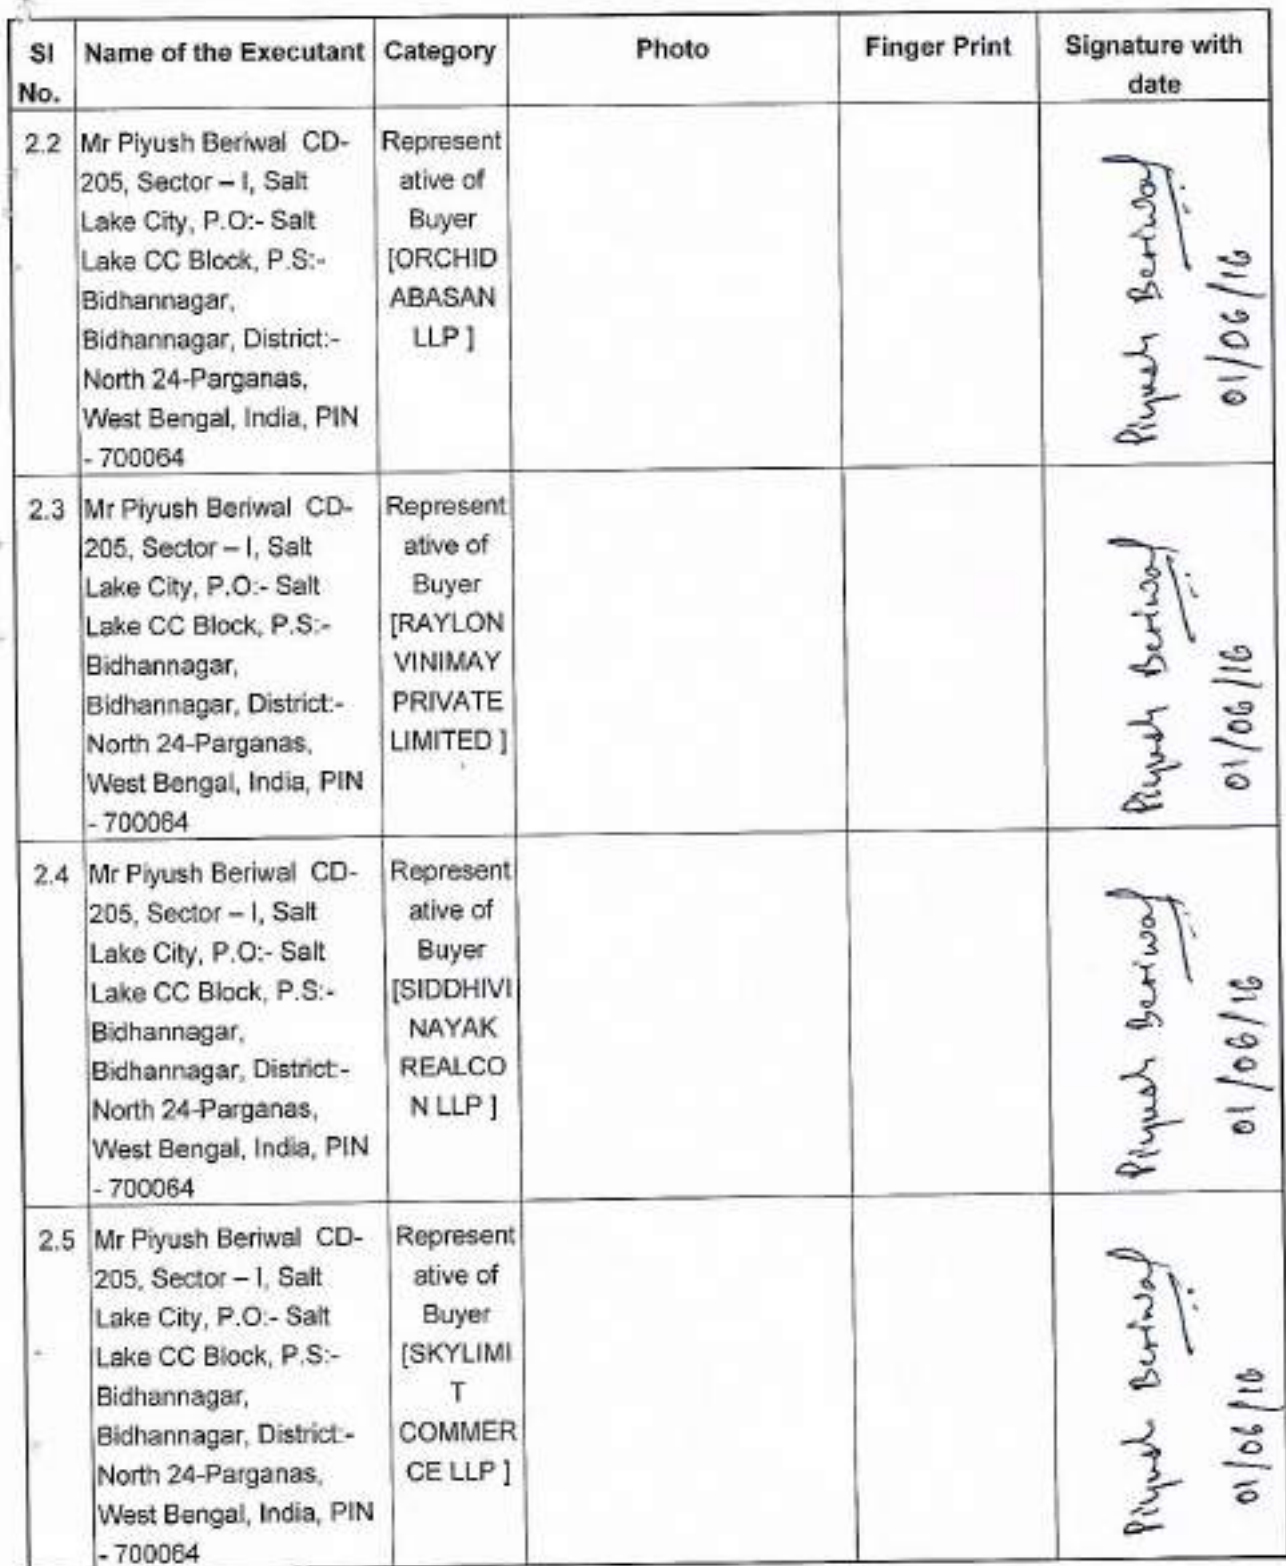 Sl No.
Name of the Executant
Category
Photo
Finger Print
Signature with date
2.2
Mr Piyush Beriwal CD-
205, Sector – I, Salt
Lake City, P.O:- Salt
Lake CC Block, P.S:-
Bidhannagar,
Bidhannagar, District:-
North 24-Parganas,
West Bengal, India, PIN
- 700064
Represent
ative of
Buyer
[ORCHID
ABASAN
LLP ]
Piyush Beriwal
01/06/16
2.3
Mr Piyush Beriwal CD-
205, Sector – I, Salt
Lake City, P.O:- Salt
Lake CC Block, P.S:-
Bidhannagar,
Bidhannagar, District:-
North 24-Parganas,
West Bengal, India, PIN
- 700064
Represent
ative of
Buyer
[RAYLON
VINIMAY
PRIVATE
LIMITED ]
Piyush Beriwal
01/06/16
2.4
Mr Piyush Beriwal CD-
205, Sector – I, Salt
Lake City, P.O:- Salt
Lake CC Block, P.S:-
Bidhannagar,
Bidhannagar, District:-
North 24-Parganas,
West Bengal, India, PIN
- 700064
Represent
ative of
Buyer
[SIDDHIVI
NAYAK
REALCO
N LLP ]
Piyush Beriwal
01/06/16
2.5
Mr Piyush Beriwal CD-
205, Sector – I, Salt
Lake City, P.O:- Salt
Lake CC Block, P.S:-
Bidhannagar,
Bidhannagar, District:-
North 24-Parganas,
West Bengal, India, PIN
- 700064
Represent
ative of
Buyer
[SKYLIMI
T
COMMER
CE LLP ]
Piyush Beriwal
01/06/16